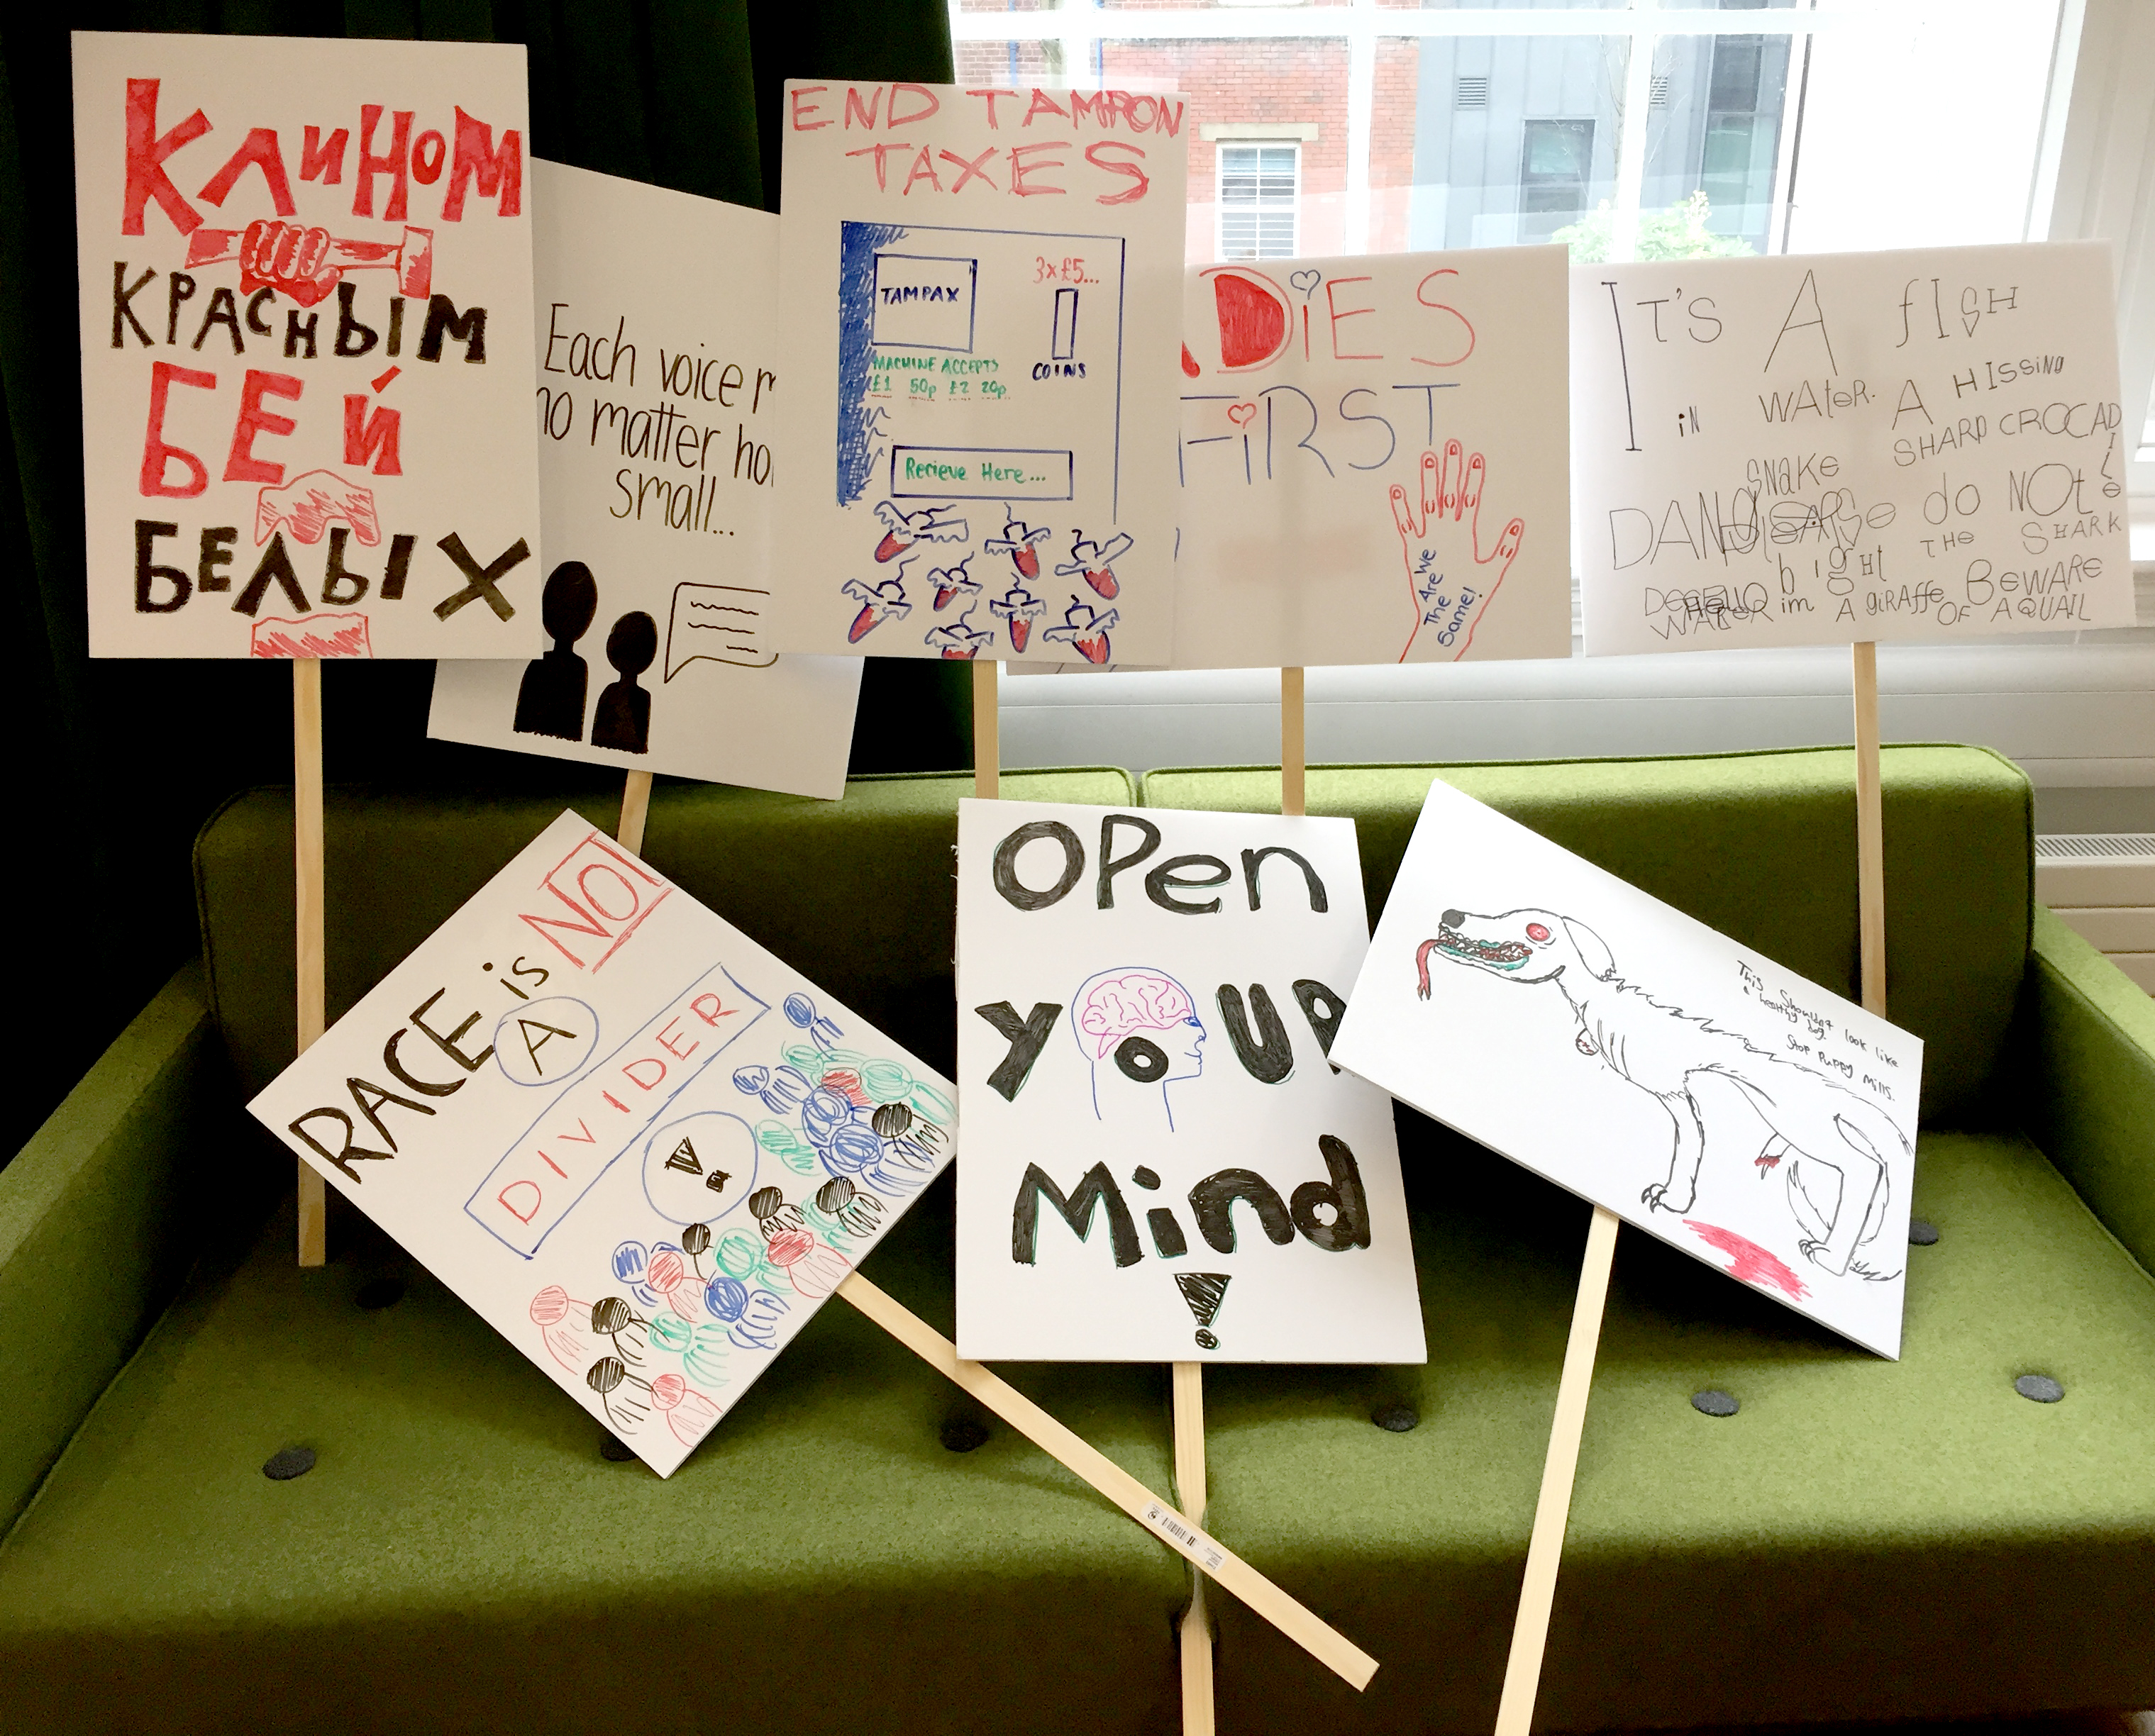 КЛИНОМ
КРАСНЫМ
БЕЙ
БЕЛЫХ
Each voice
no matter
small...
END TAMPON
TAXES
TAMPAX
3x£5...
COINS
MACHINE ACCEPTS
£1 50p £2 20p
Recieve Here...
DiES
FiRST
We
Are
The
Same!
IT'S A fISH
iN WAteR. A HISSING
SNAKE SHARP CROCADILe
DANG do NOt
bigHt THe SHARK
im A giRAffe BeWARe
OF A QUAIL
RACE is NOT
A
DIVIDER
OPen
YOUR
Mind
!
This Shouldnt look like
a healthy dog.
Stop Puppy Mills.